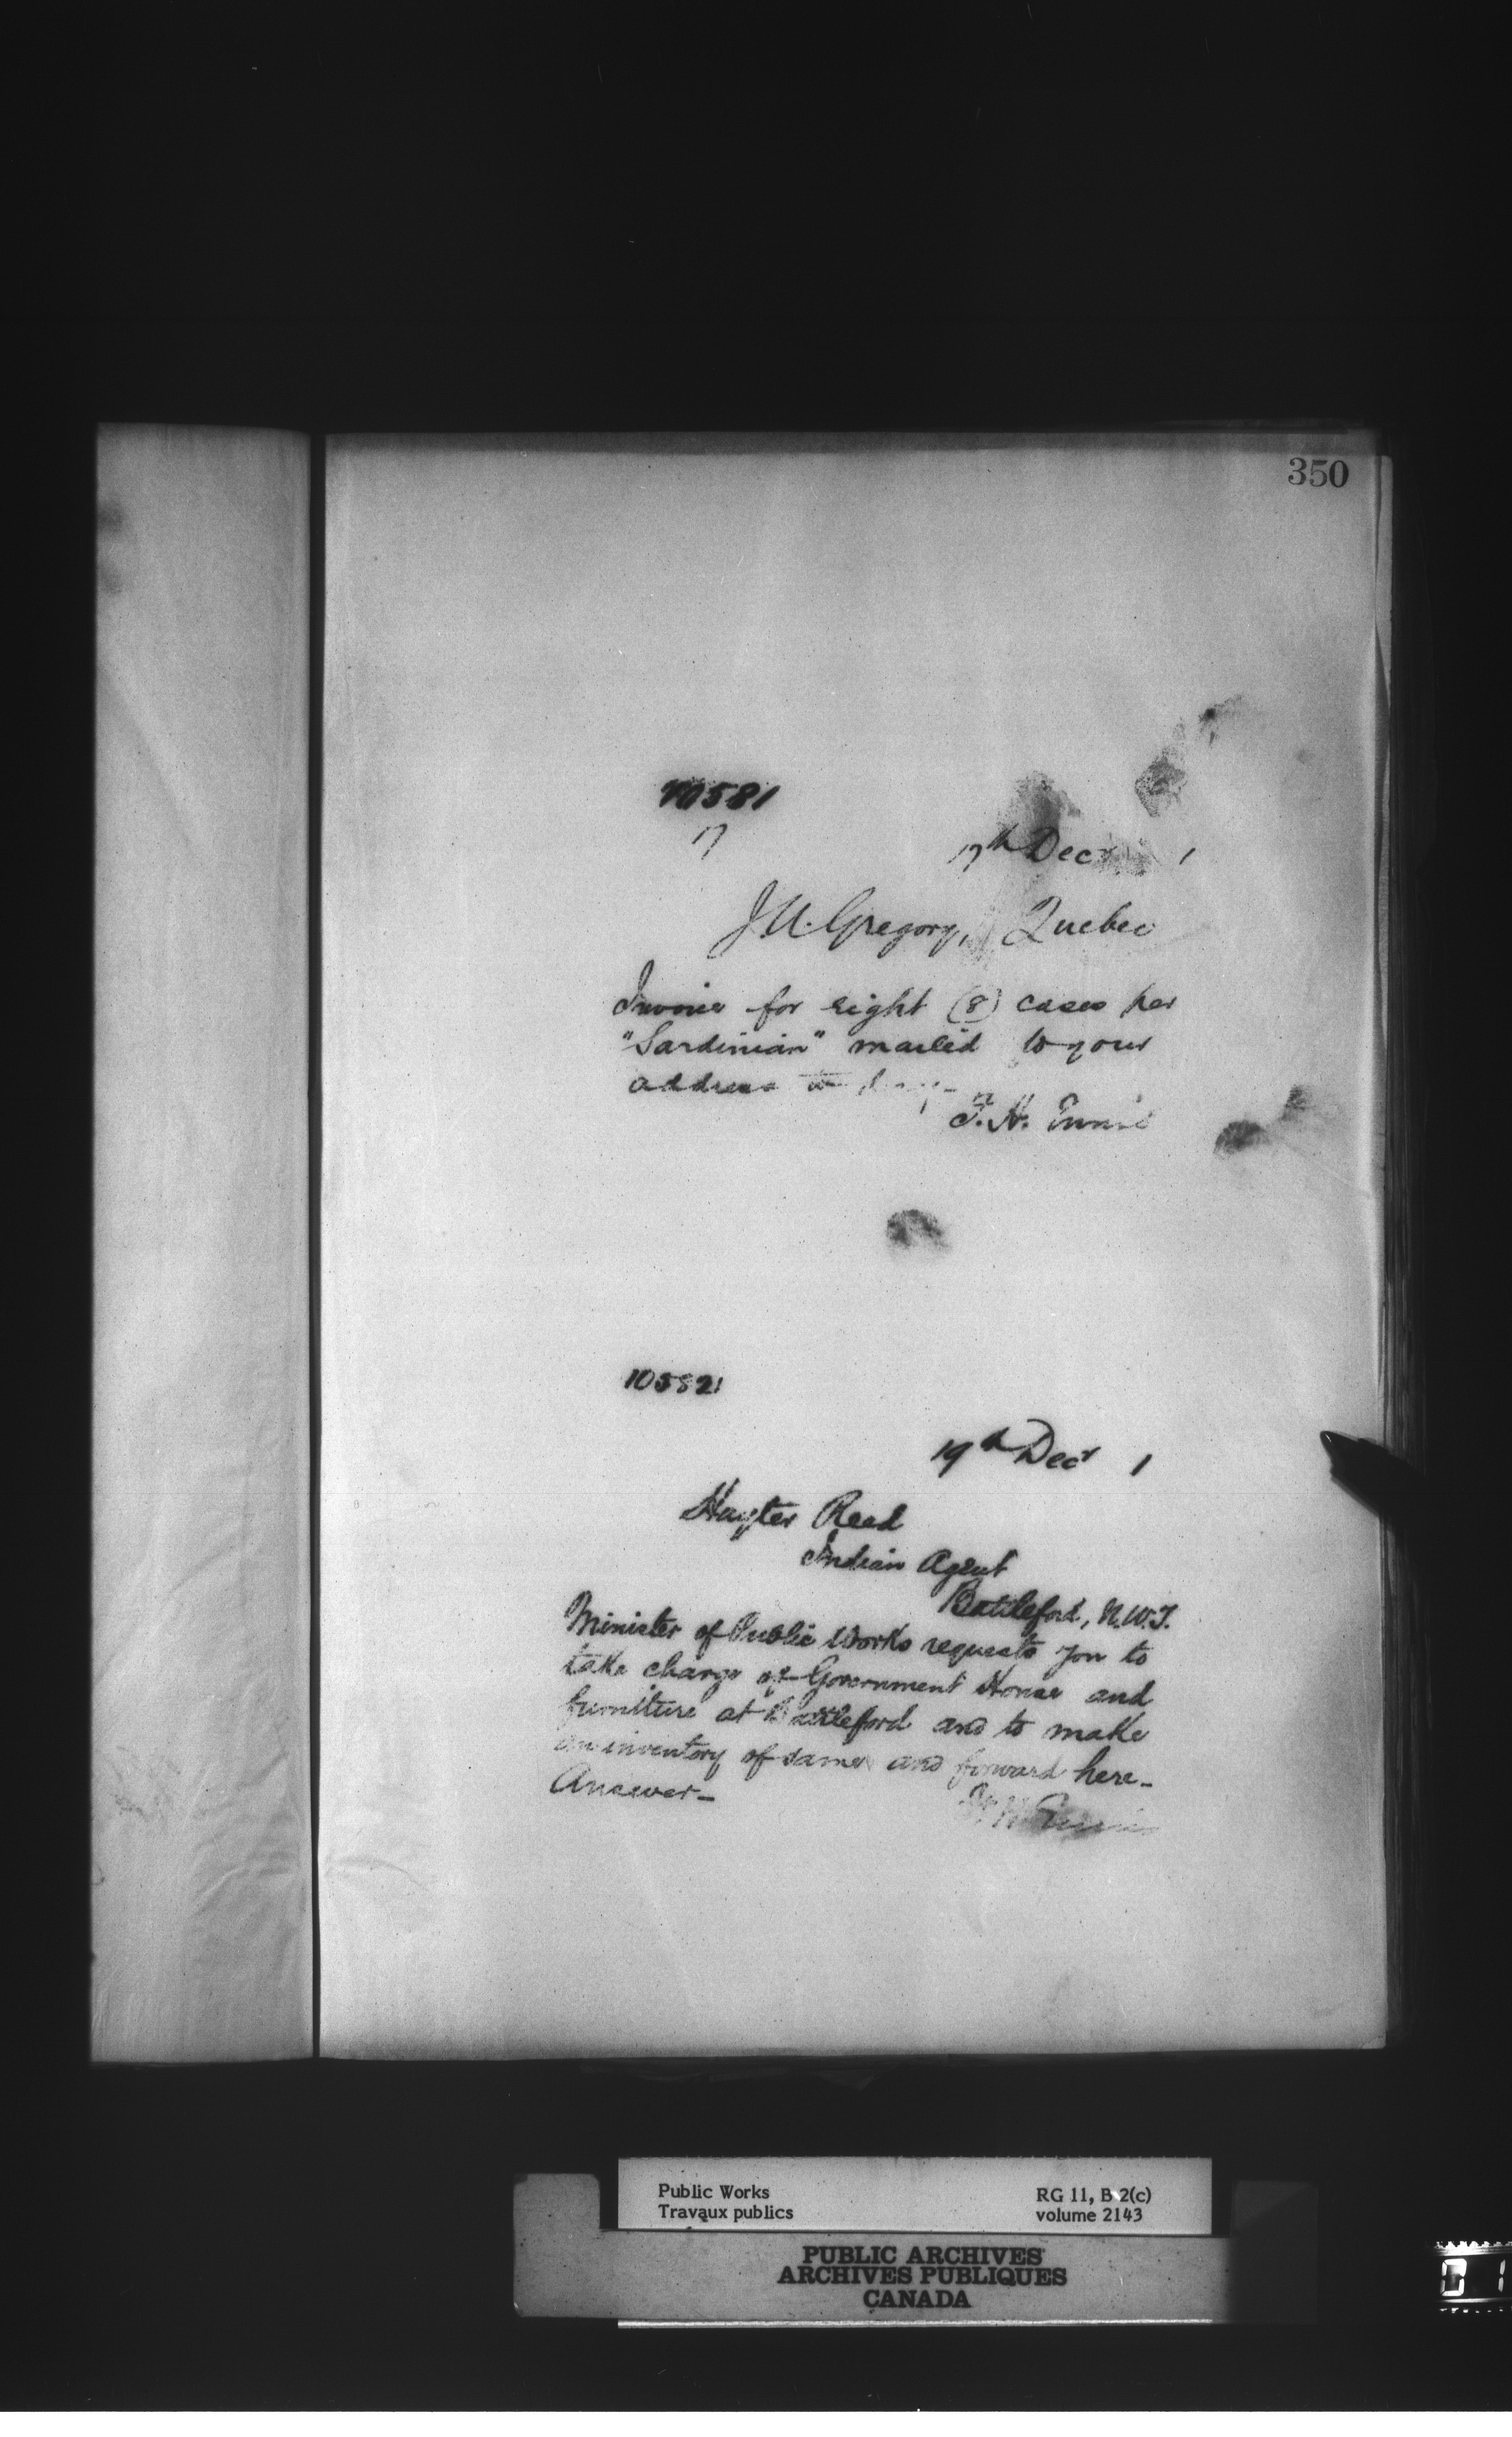 350
10581
17
17th Decr 1
J.U. Gregory, Quebec
Invoice for eight (8) cases per
"Sardinian" mailed to your
address to day-
F. H. Ennis
10582
19th Decr 1
Hayter Reed
Indian Agent
Battleford, N.W.T.
Minister of Public Works requests you to
take charge of Government House and
furniture at Battleford and to make
an inventory of same and forward here-
Answer-
F. H. Ennis
Public Works
Travaux publics
RG 11, B 2(c)
volume 2143
PUBLIC ARCHIVES
ARCHIVES PUBLIQUES
CANADA